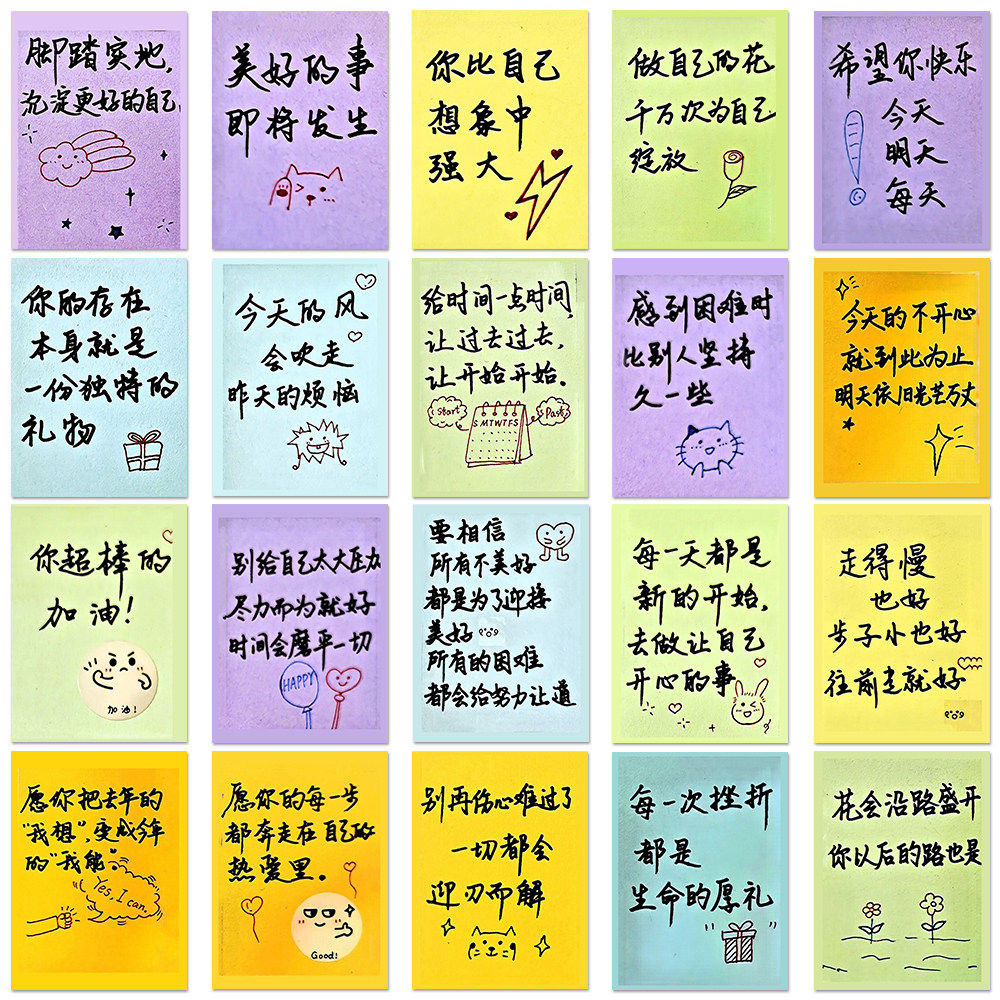 脚踏实地,
沉淀更好的自己
美好的事
即将发生
你比自己
想象中
强大
做自己的花
千万次为自己
绽放
希望你快乐
今天
明天
每天
你的存在
本身就是
一份独特的
礼物
今天的风
会吹走
昨天的烦恼
给时间一点时间,
让过去过去,
让开始开始.
Start
Past
SMTWTFS
感到困难时
比别人坚持
久一些
今天的不开心
就到此为止
明天依旧光芒万丈
你超棒的
加油!
加油!
别给自己太大压力
尽力而为就好
时间会磨平一切
HAPPY
要相信
所有不美好
都是为了迎接
美好
所有的困难
都会给努力让道
每一天都是
新的开始,
去做让自己
开心的事
走得慢
也好
步子小也好
往前走就好
愿你把去年的
"我想",变成今年
的"我能".
Yes, I can.
愿你的每一步
都奔走在自己的
热爱里。
Good!
别再伤心难过了
一切都会
迎刃而解
每一次挫折
都是
生命的厚礼
花会沿路盛开
你以后的路也是